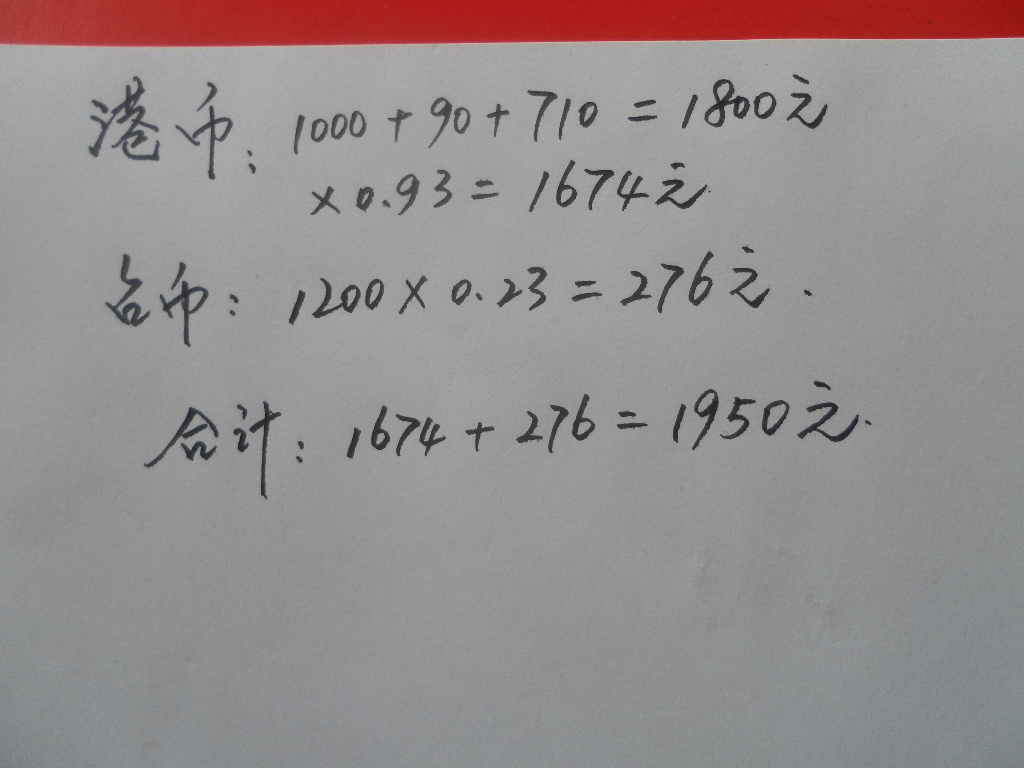 港币: 1000 + 90 + 710 = 1800元
× 0.93 = 1674元
台币: 1200 × 0.23 = 276元.
合计: 1674 + 276 = 1950元.